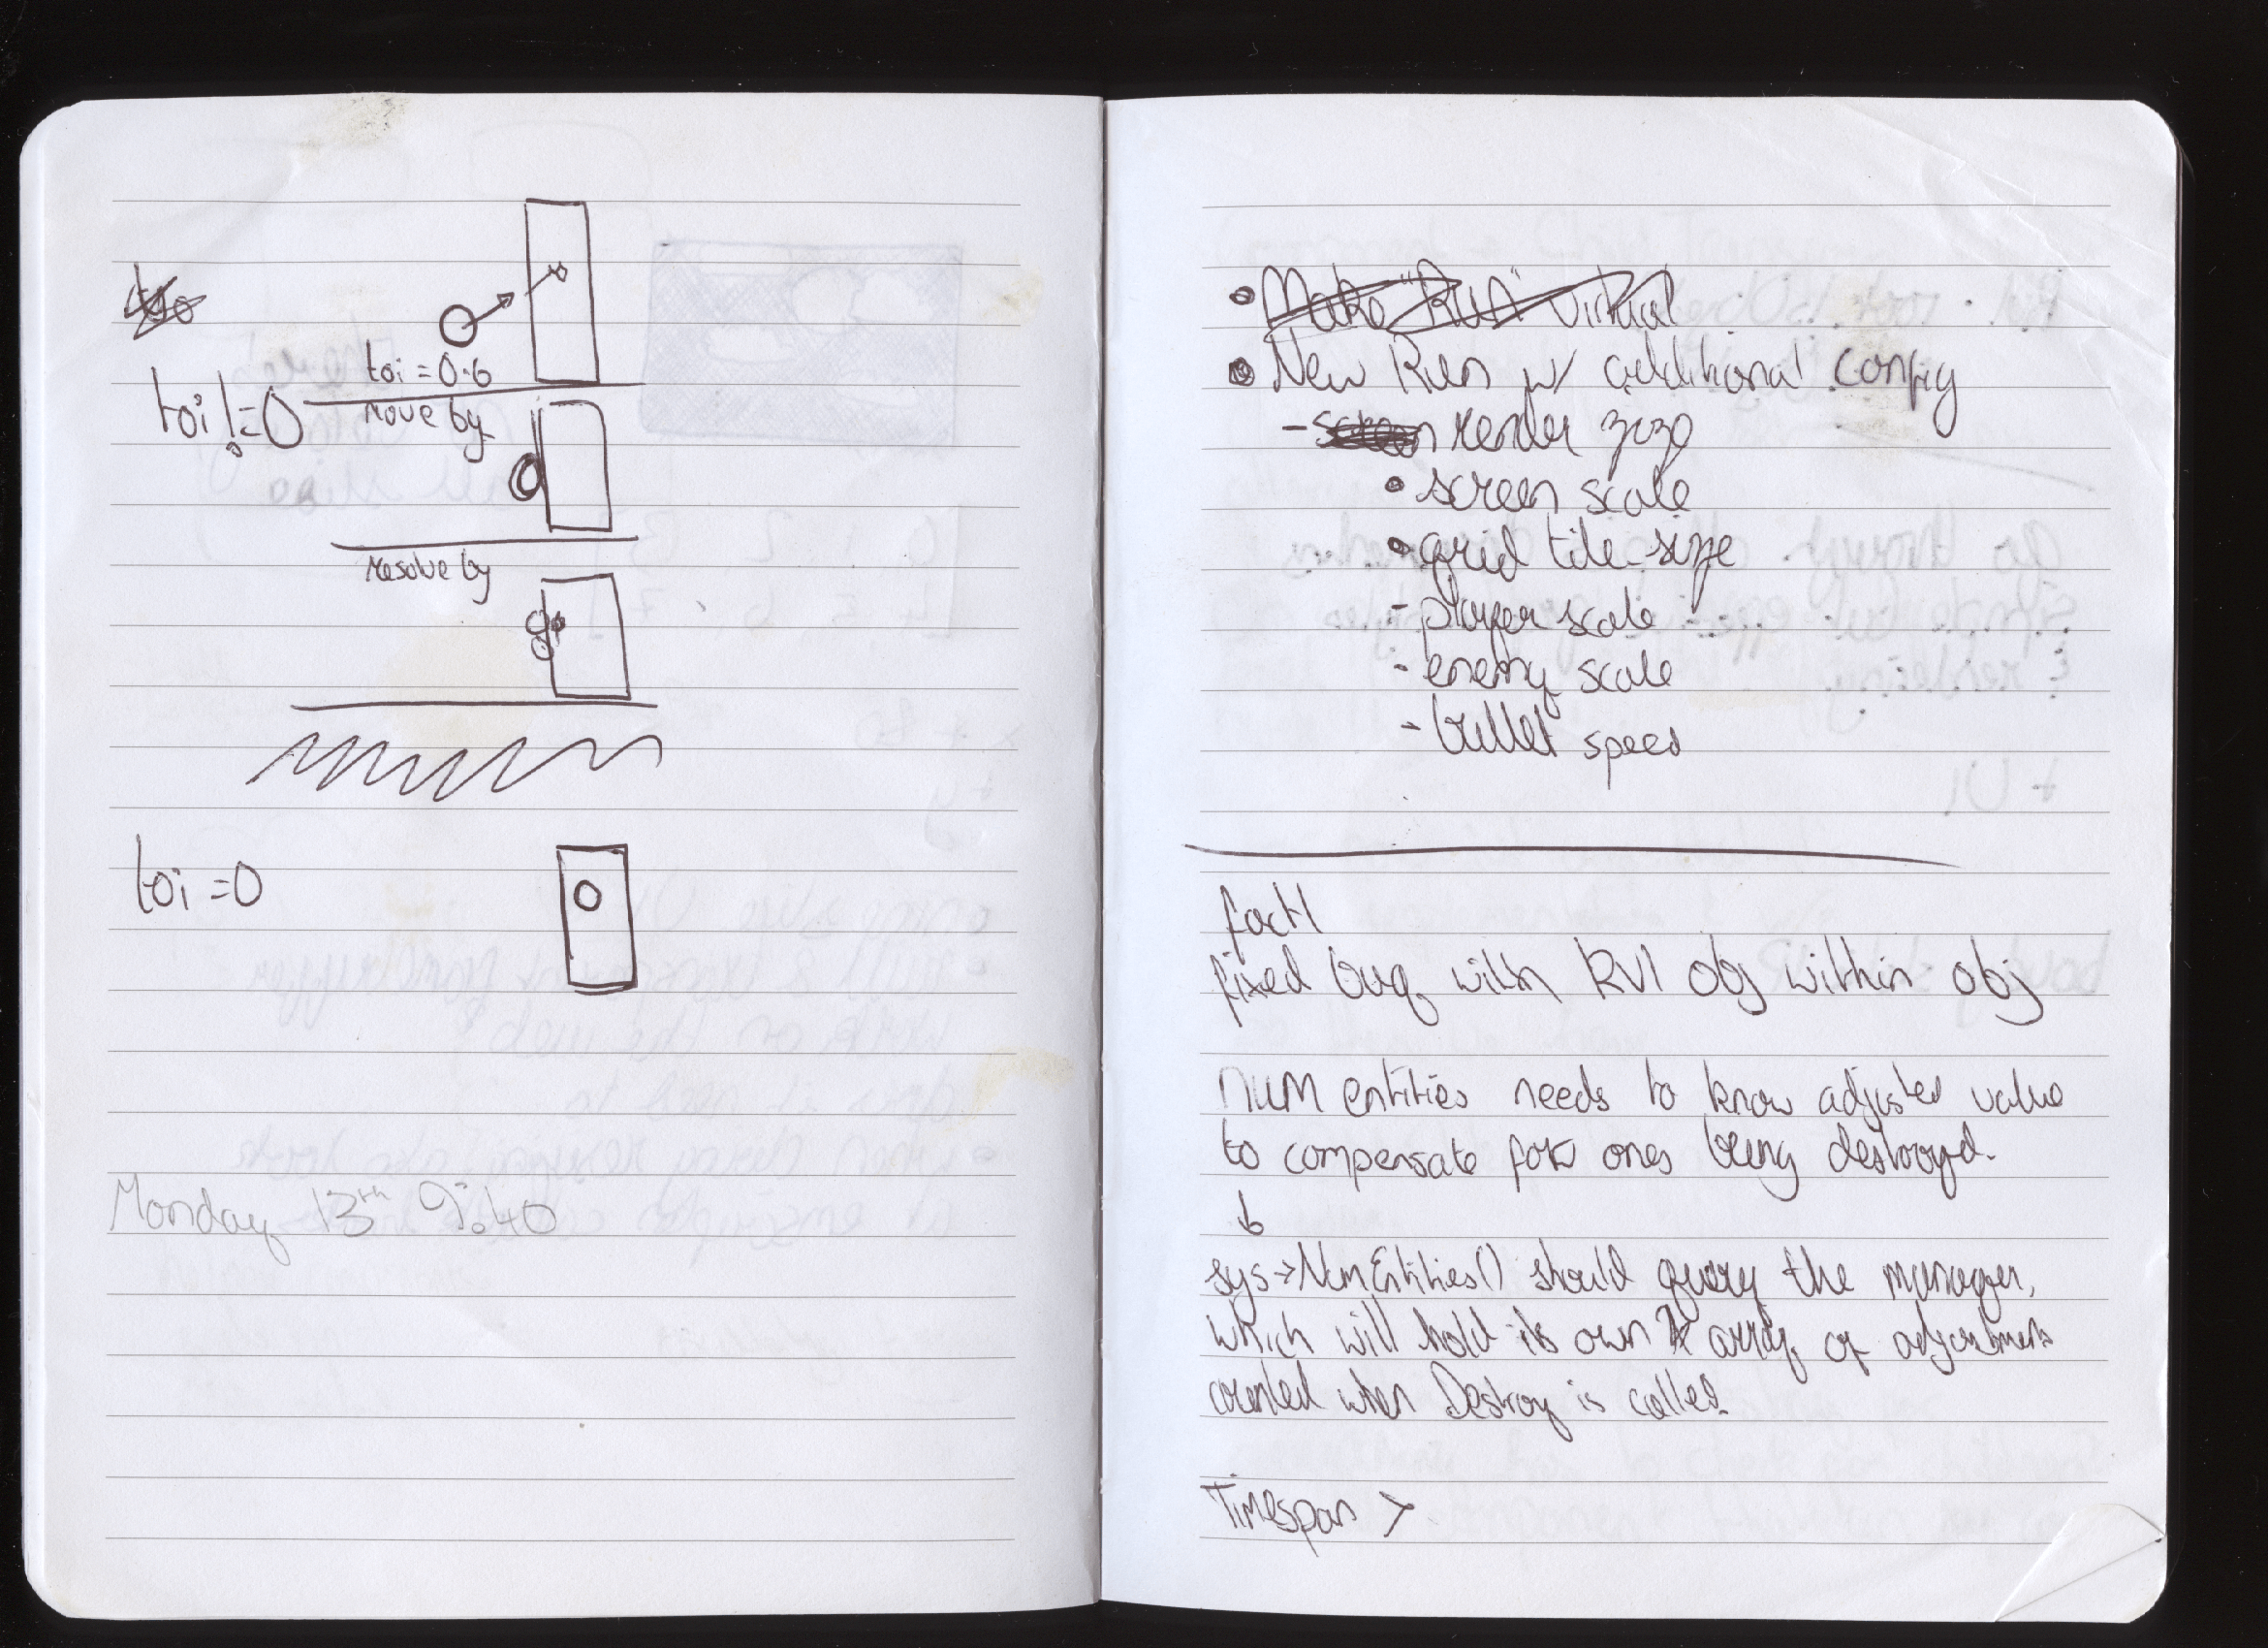 toi = 0.6
toi != 0
move by
resolve by
toi = 0
Monday 13th 9:40
• Make "Run" virtual
• New Run w/ additional config
- screen render size
• screen scale
• grid tile size
- player scale
- enemy scale
- bullet speed
fact!
fixed bug with RVI obj within obj
num entities needs to know adjusted value
to compensate for ones being destroyed.
↓
sys->NumEntities() should query the manager,
which will hold its own array of adjustments
counted when Destroy is called
Timespan >